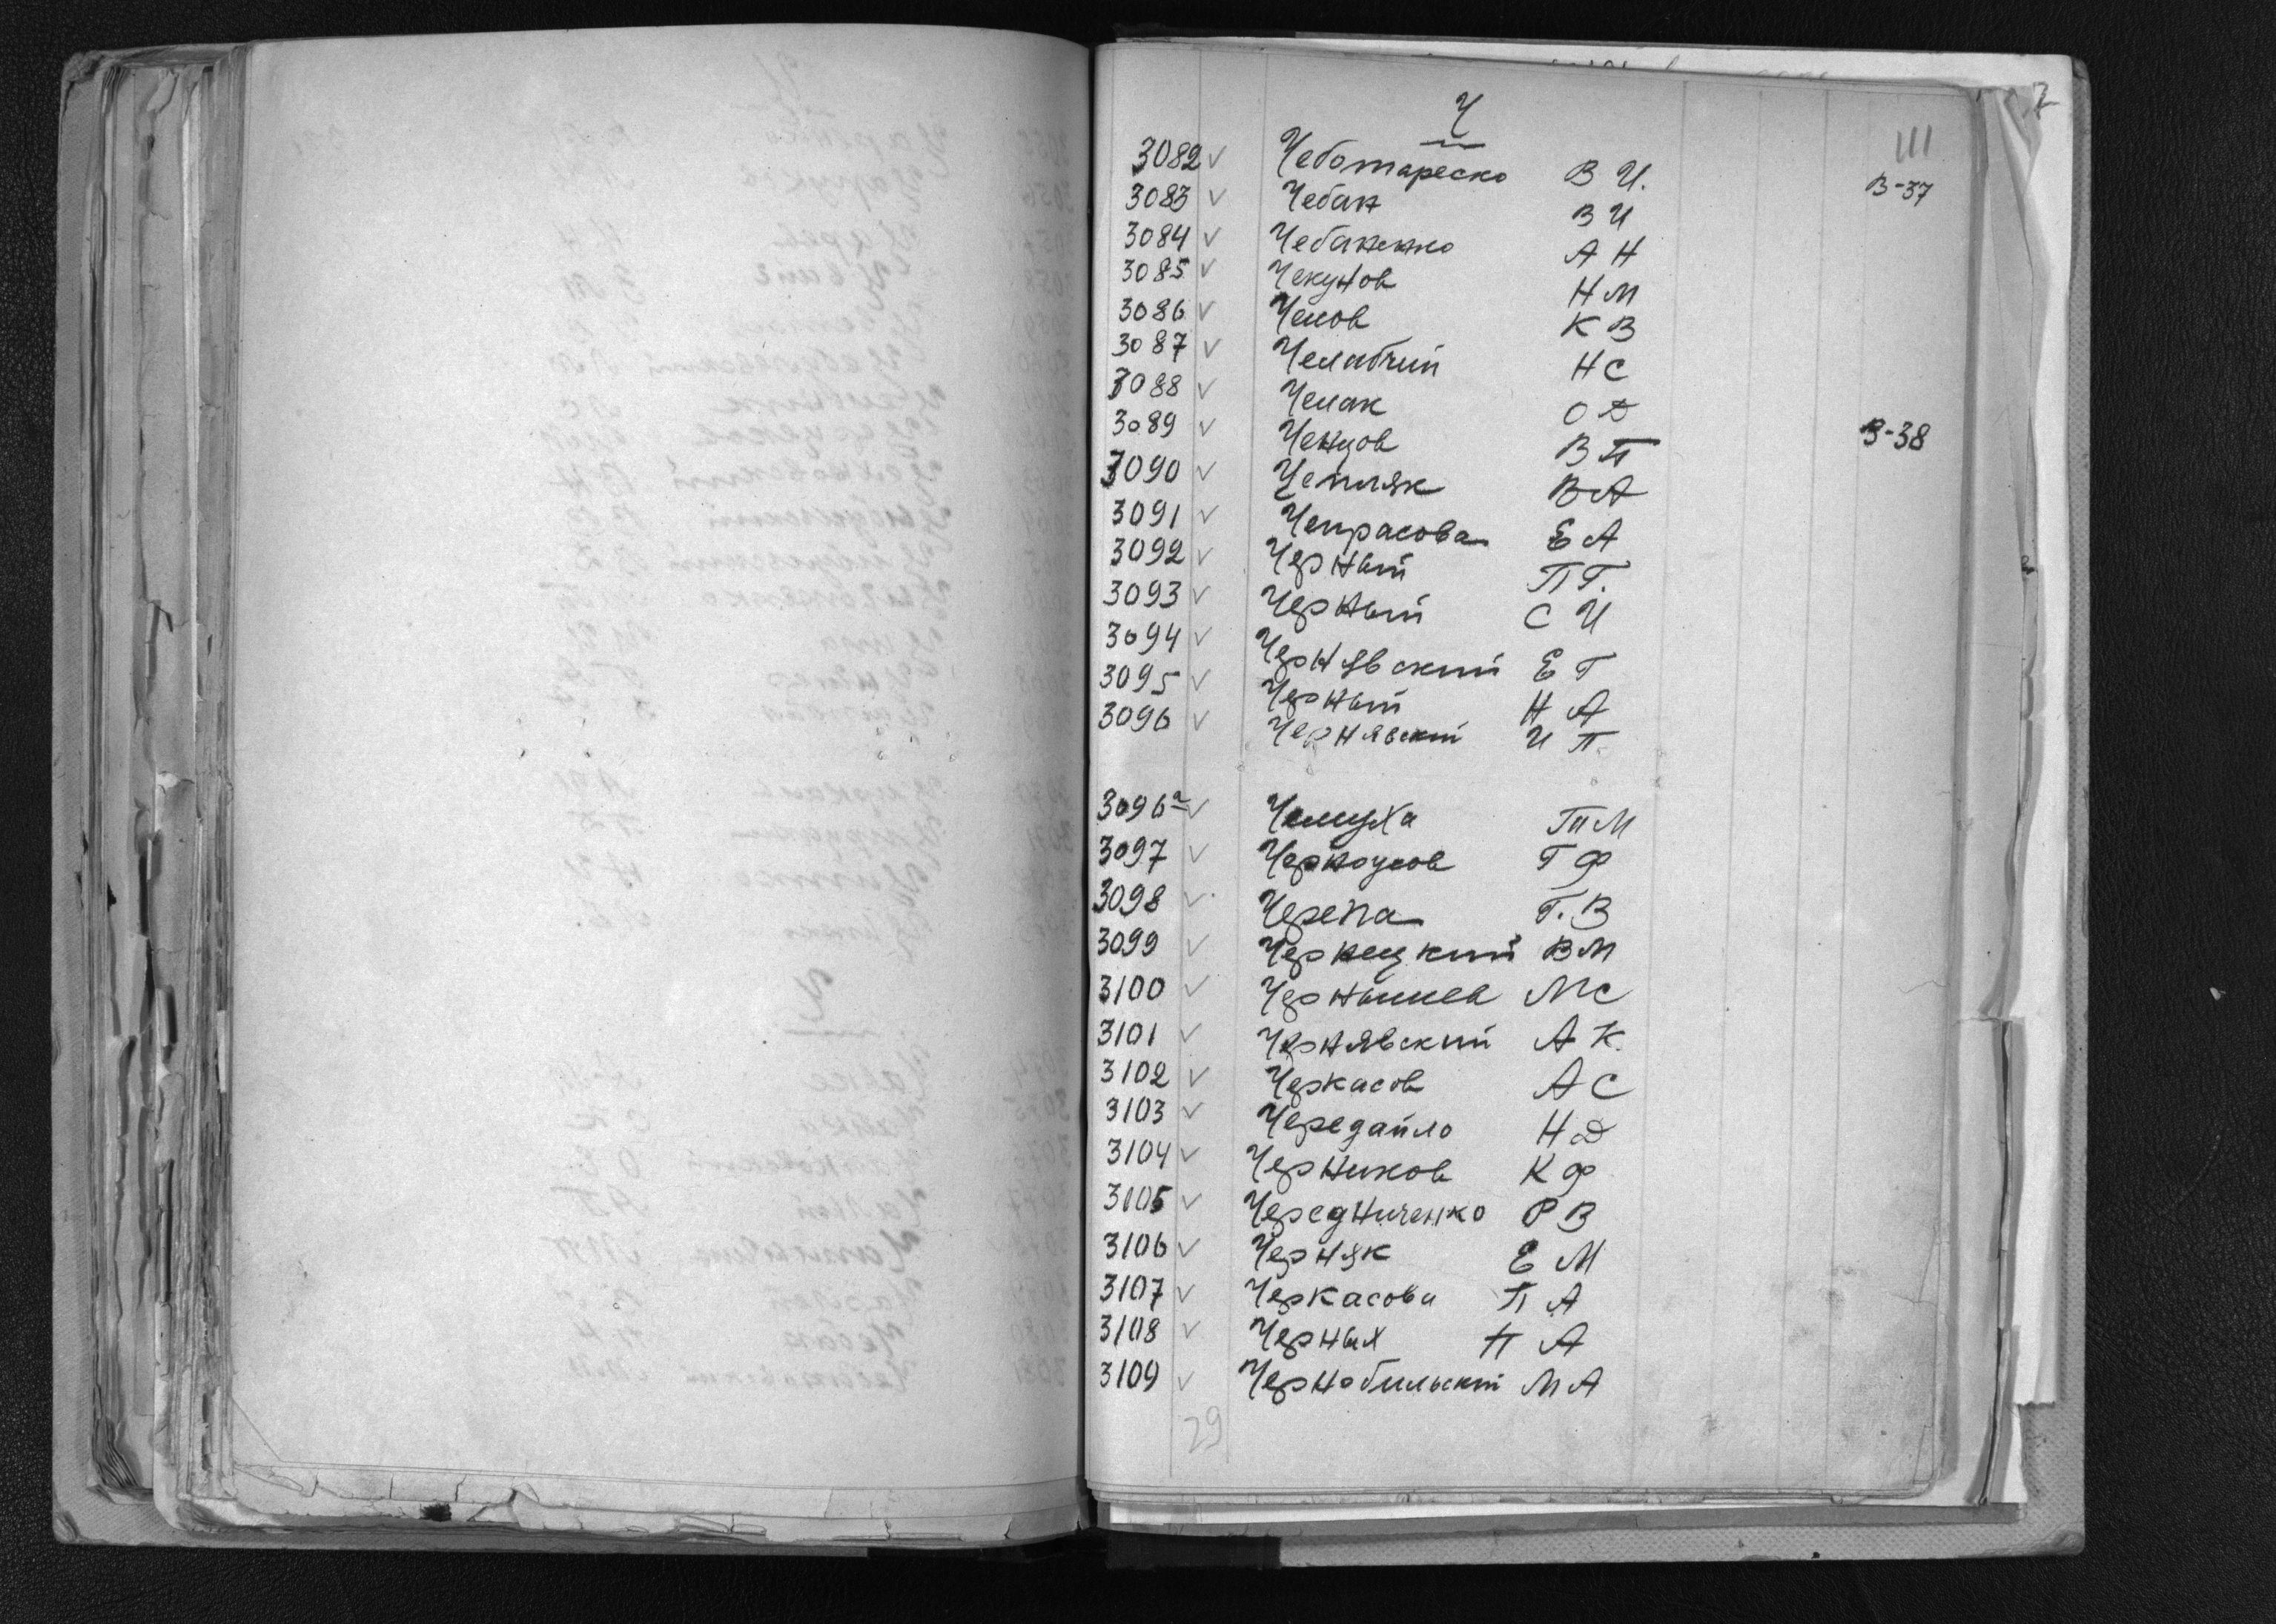 Ч
111
3082 ✓ Чеботареско В И. В-37
3083 ✓ Чебан В И
3084 ✓ Чебаненко А Н
3085 ✓ Чекунов Н М
3086 ✓ К В
3087 ✓ Челабчий Н С
3088 ✓ О Д
3089 ✓ Ченцов В П В-38
3090 ✓ Чепляк В А
3091 ✓ Чепрасова Е А
3092 ✓ Черный П Г.
3093 ✓ Черный С И
3094 ✓ Чернявский Е Г
3095 ✓ Черный Н А
3096 ✓ Чернявский И П
3096а ✓ М
3097 ✓ Черноусов Г Ф
3098 ✓ Черепа Г. В
3099 ✓ Чернецкий В М
3100 ✓ Чернышев М С
3101 ✓ Чернявский А К.
3102 ✓ Черкасов А С
3103 ✓ Передайло Н Д
3104 ✓ Черников К Ф
3105 ✓ Чередниченко Р В
3106 ✓ Черняк Е М
3107 ✓ Черкасова П А
3108 ✓ Черных П А
3109 ✓ Чернобильский М А
29